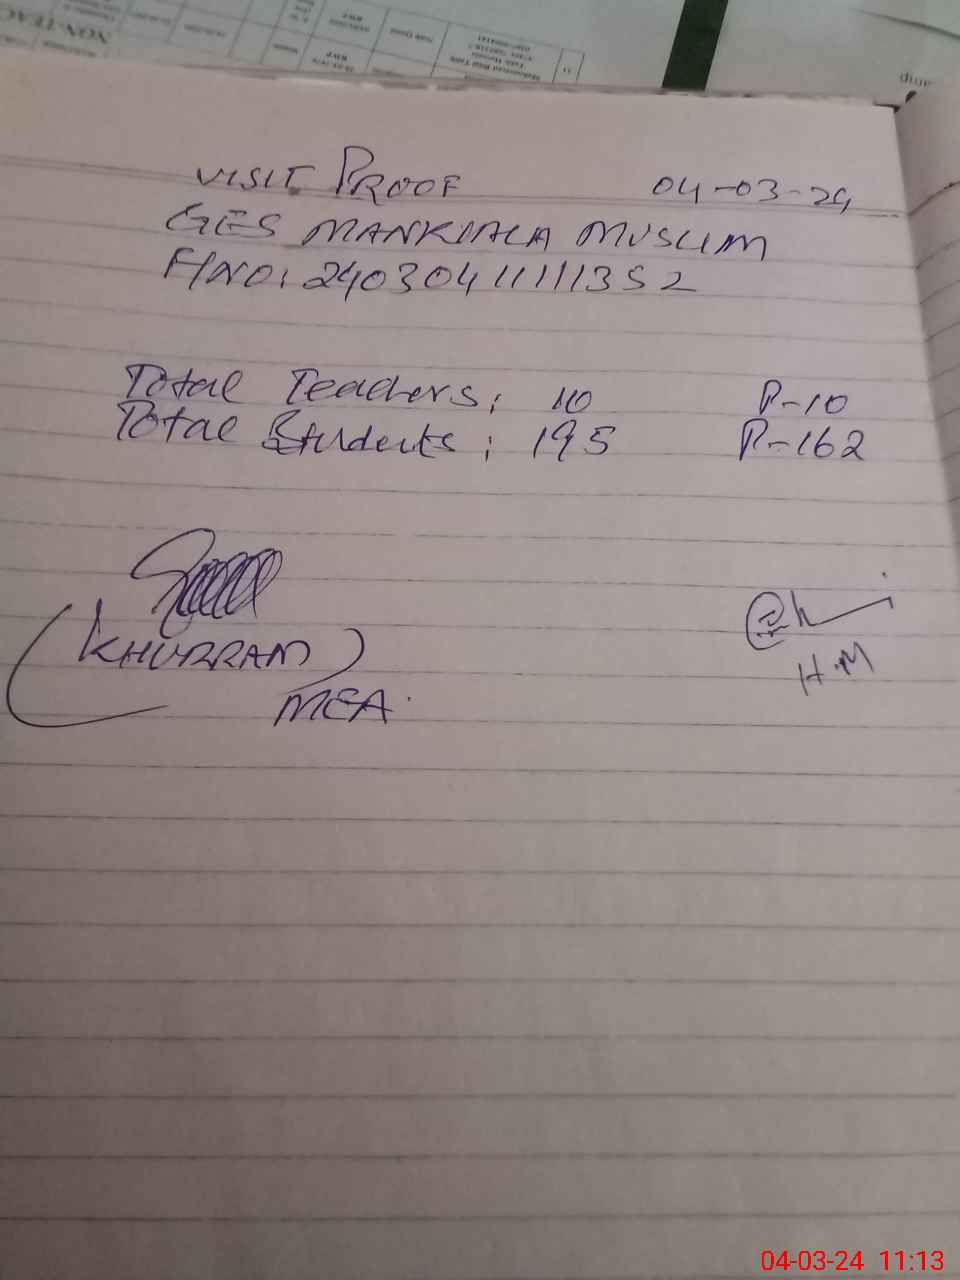 VISIT PROOF 04-03-24
GES MANKIALA MUSLIM
F/NO: 24030411111352
Total Teachers: 10 P-10
Total Students: 195 P-162
(KHURRAM)
MEA.
H.M
04-03-24 11:13